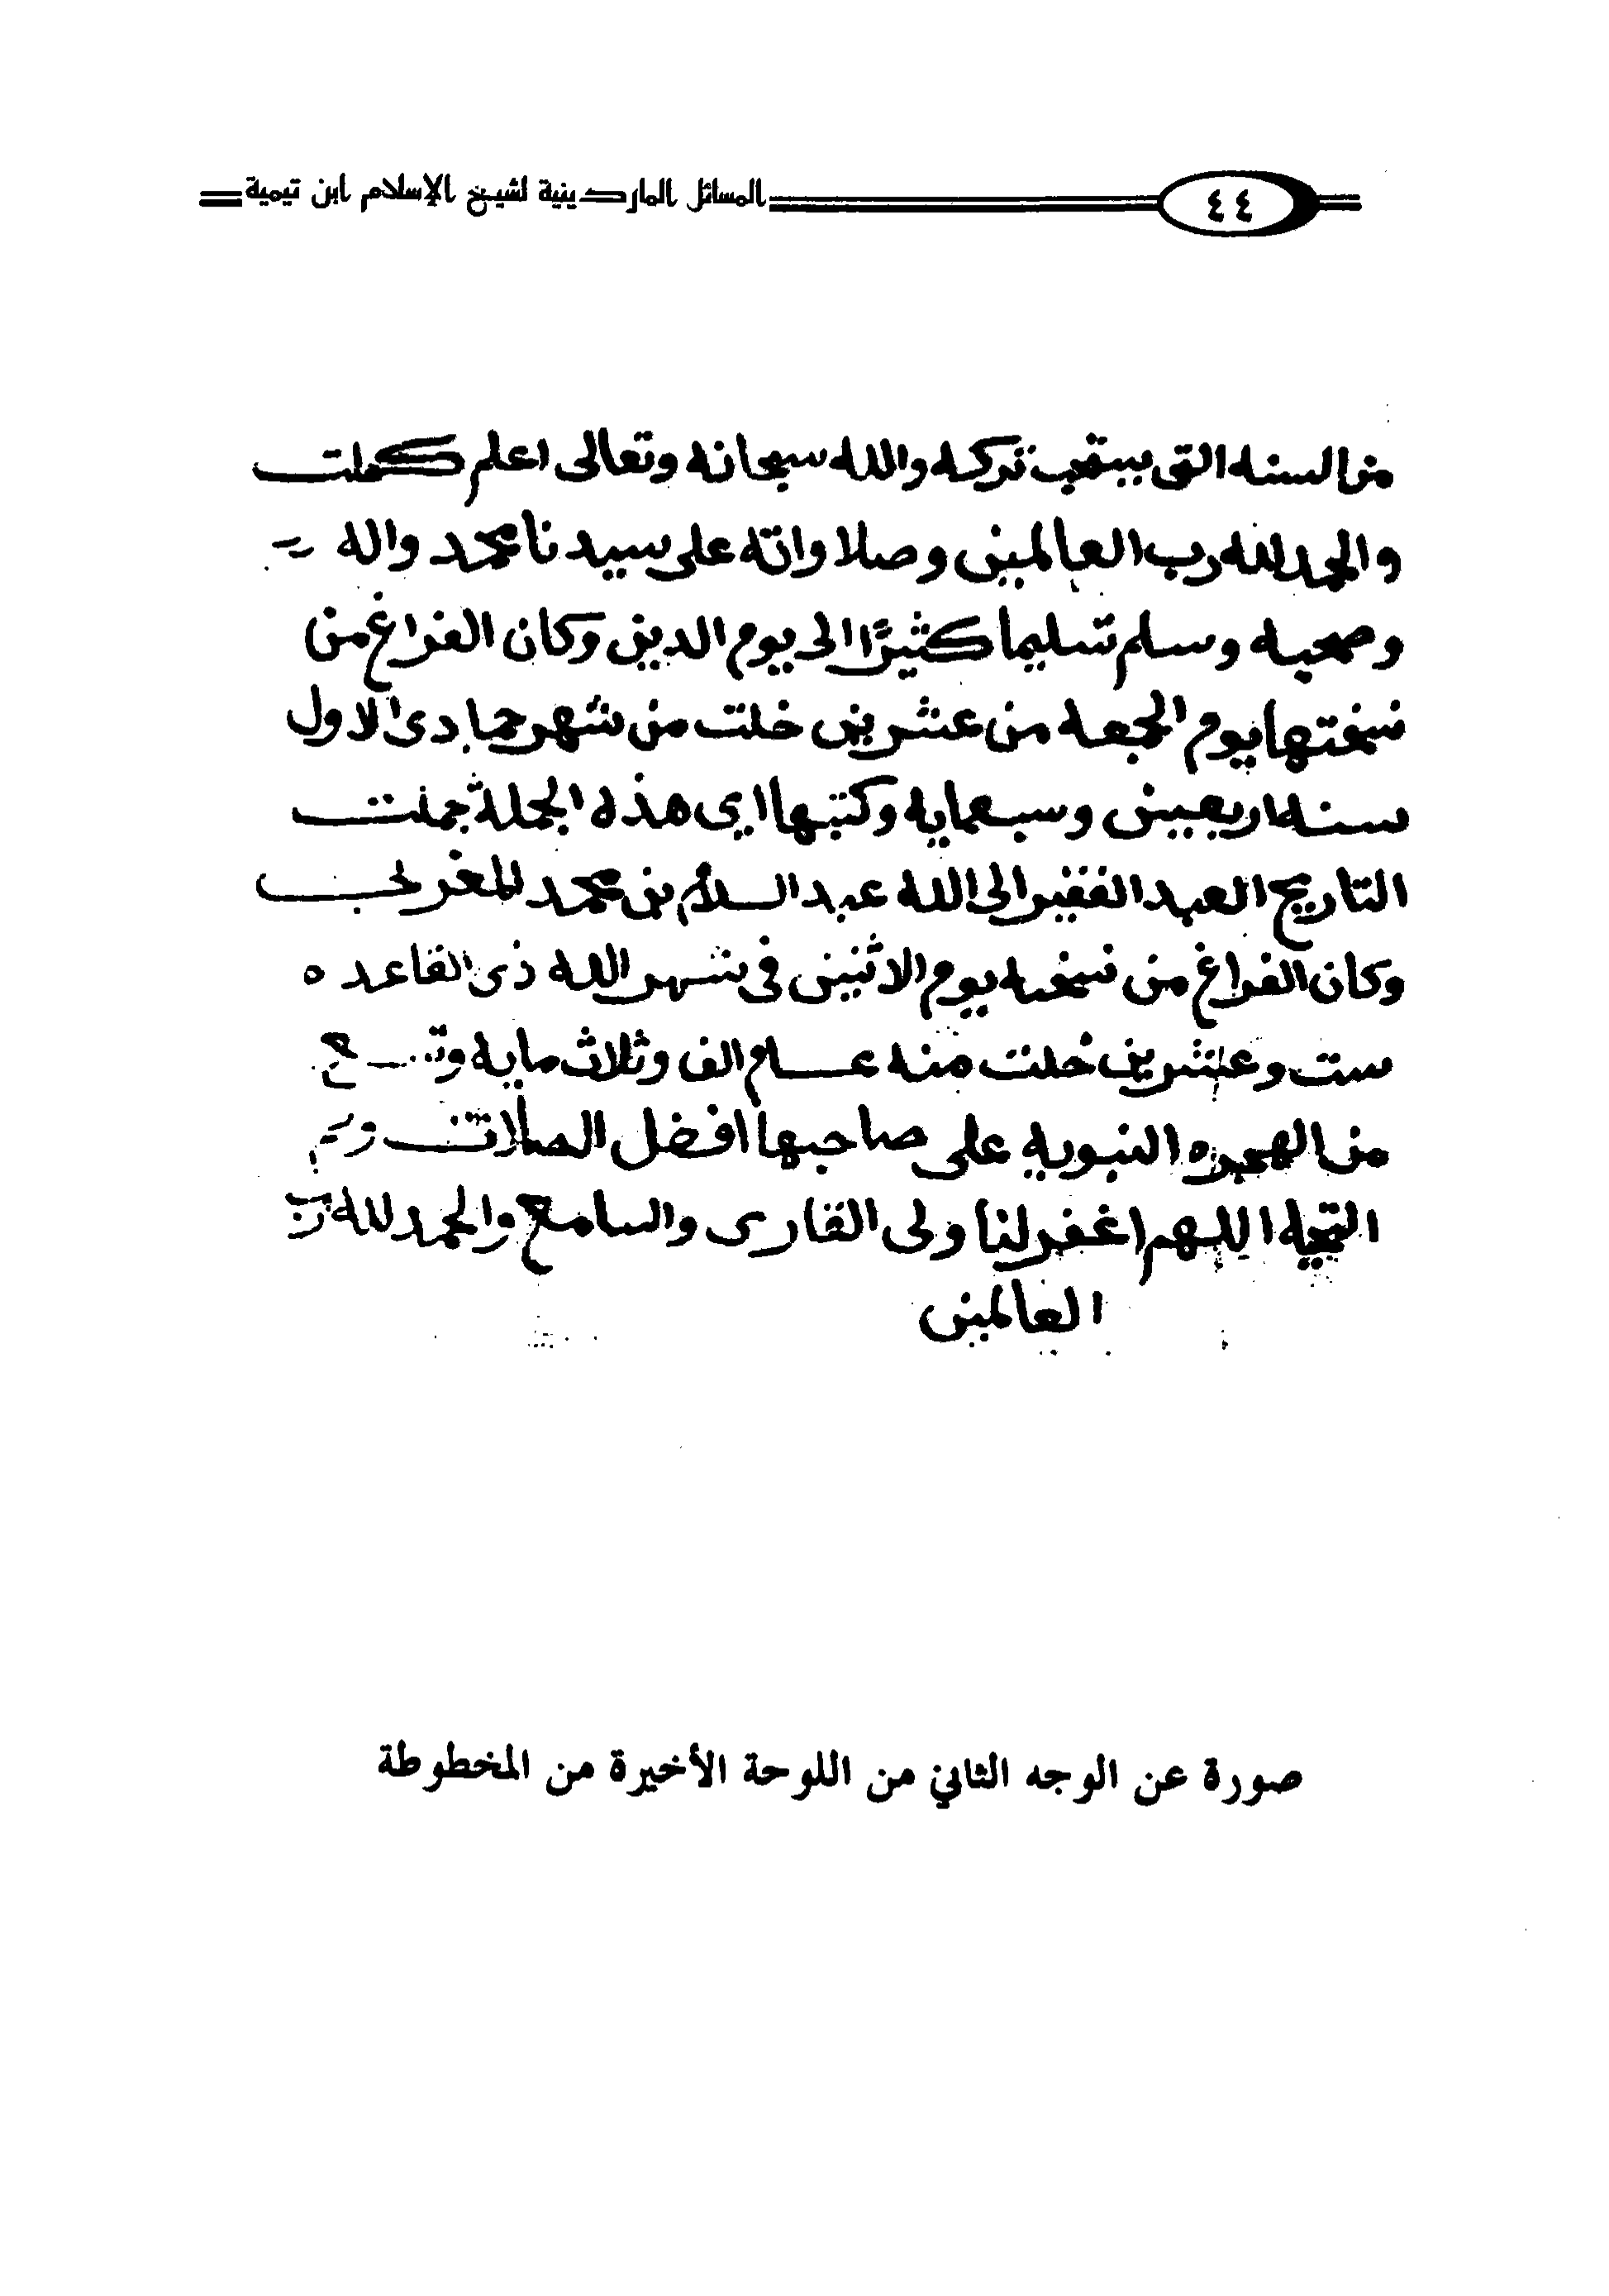 ٤٤ المسائل الماردينية لشيخ الإسلام ابن تيمية
من السنه التى تركه والله سبحانه وتعالى اعلم كملت
والحمد لله رب العالمين وصلاواته على سيدنا محمد واله
وصحبه وسلم تسليما كثيرًا الى يوم الدين وكان الفراغ من
نسختها يوم الجمعه من عشرين خلت من شهر جمادى الاول
سنه اربعين وسبعمايه وكتبها اى هذه الجملة
التاريخ العبد الفقير الى الله عبد السلام بن محمد المغربى
وكان الفراغ من نسخه يوم الاثنين فى شهر الله ذى القاعده
ست وعشرين خلت منه عام الف وثلاث مايه
من الهجره النبويه على صاحبها افضل الصلات
التحيه اللهم اغفر لنا ولى القارى والسامع والحمد لله رب
العالمين
صورة عن الوجه الثاني من اللوحة الأخيرة من المخطوطة